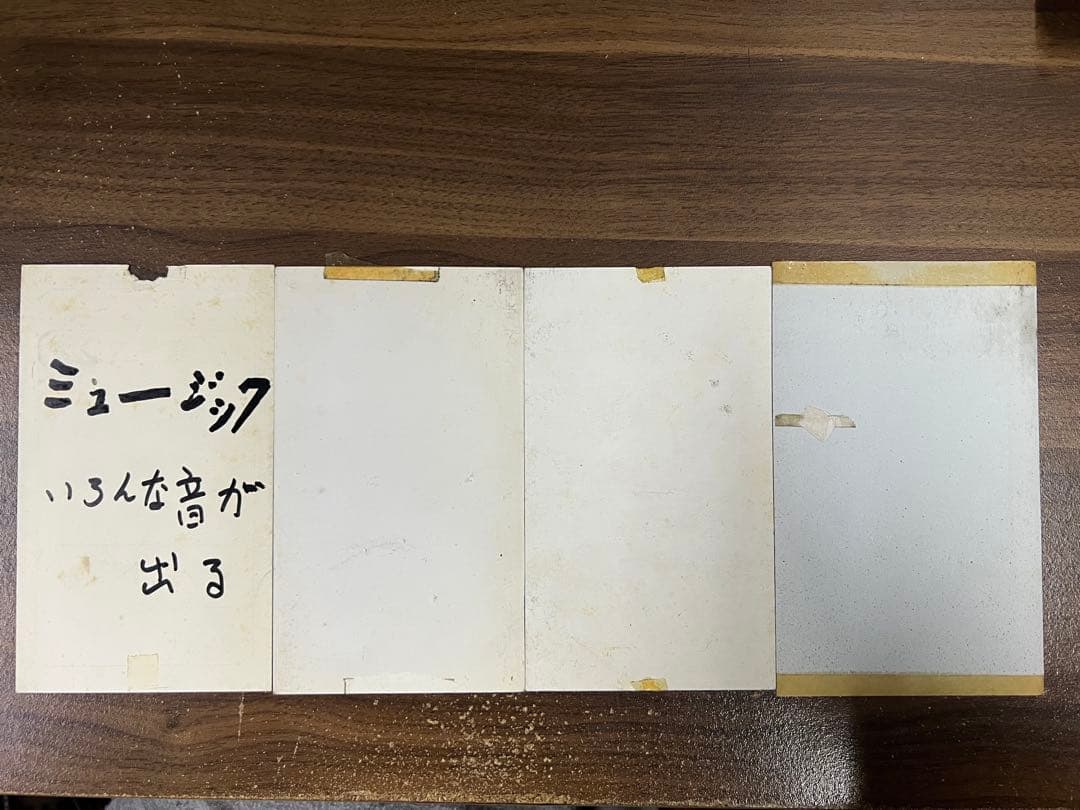 ミュージック
いろんな音が
出る